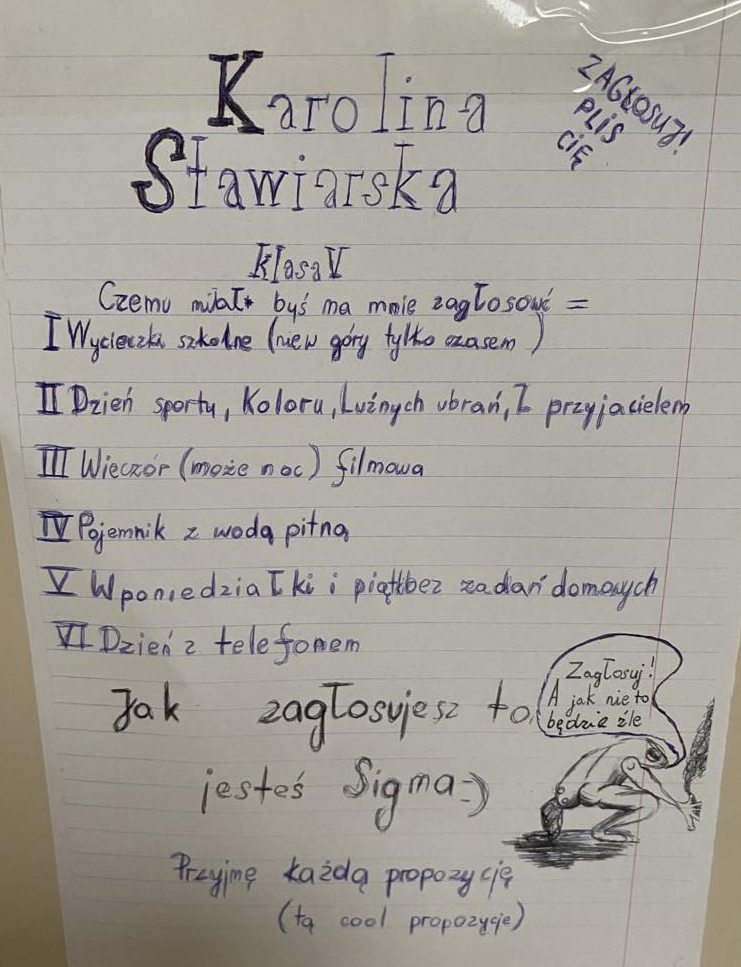 Karolina
Stawiarska
ZAGŁOSUJ!
PLIS
CIĘ
klasa V
Czemu miał* byś ma mnie zagłosować =
I Wycieczki szkolne (nie w góry tylko czasem )
II Dzień sportu, Koloru, Luźnych ubrań, Z przyjacielem
III Wieczór (może noc) filmowa
IV Pojemnik z wodą pitną
V W poniedziałki i piątki bez zadań domowych
VI Dzień z telefonem
Zagłosuj!
A jak nie to
będzie źle
Jak zagłosujesz to
jesteś Sigma =)
Przyjmę każdą propozycję
(tą cool propozycje)